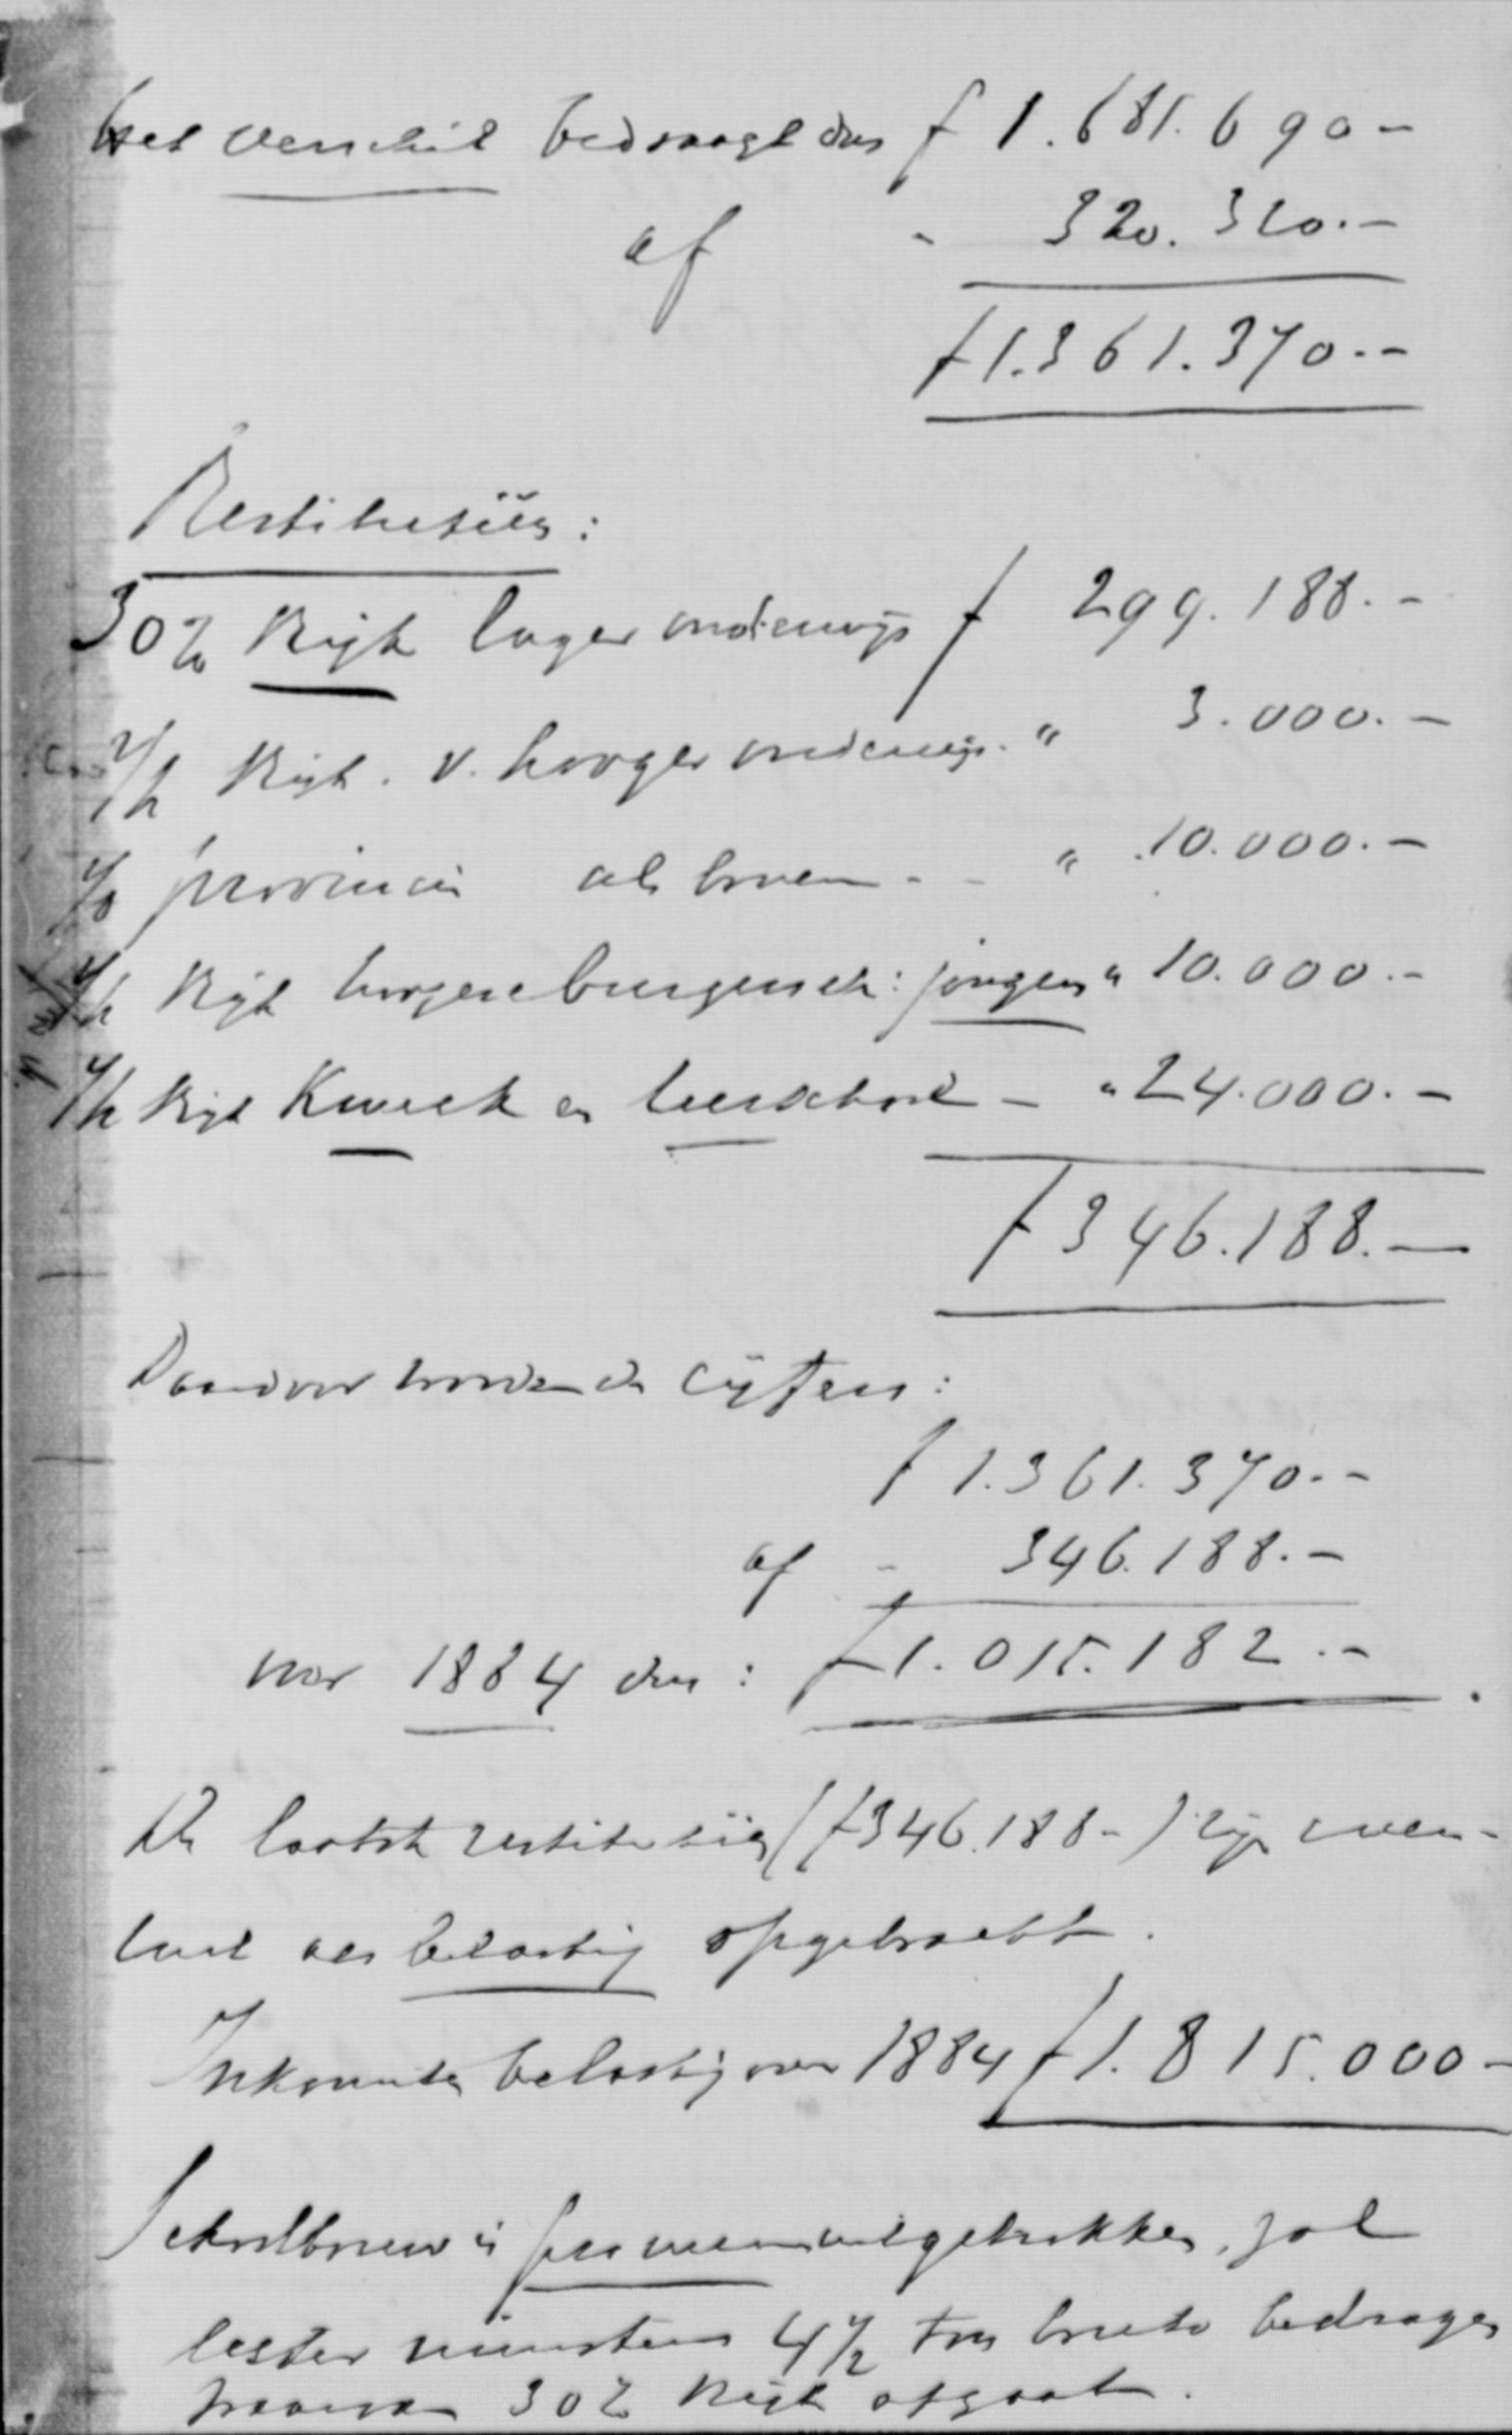 Het verschil bedraagt dus f 1.681.690-
af - 320.320.-
f 1.361.370.-
Restitutiën:
30% Rijk lager onderwijs f 299.188.-
Rijk. v. hooger onderwijs. " 3.000.-
provincie als boven - - " 10.000.-
Rijk hoogere burgersch: jongens " 10.000.-
Rijk Kweek en leerschool - " 24.000.-
f 346.188.-
Daarvoor worden de cijfers:
f 1.361.370.-
af - 346.188.-
voor 1884 dus: f 1.015.182.-
De laatste restitutiën (f 346.188-) zijn even-
als belasting opgebracht.
Inkomsten belasting over 1884 f 1.815.000-
Schoolbouw is pro memorie uitgetrokken, zal
echter minstens 4 1/2 ton bruto bedragen
waarvan 30% Rijk afgaat.